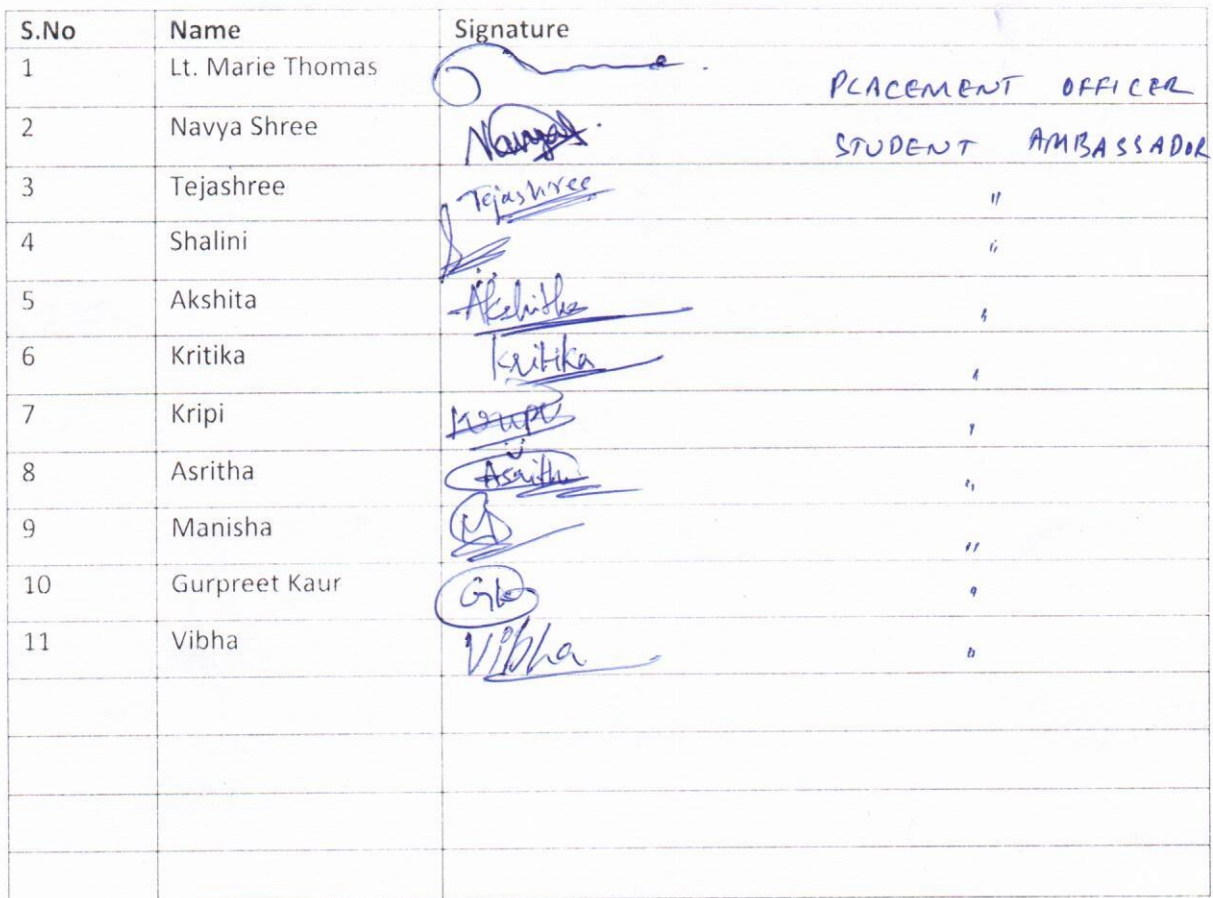 S.No Name Signature
1 Lt. Marie Thomas PLACEMENT OFFICER
2 Navya Shree Navya STUDENT AMBASSADOR
3 Tejashree Tejashree "
4 Shalini "
5 Akshita Akshitha "
6 Kritika Kritika "
7 Kripi "
8 Asritha Asritha "
9 Manisha M "
10 Gurpreet Kaur "
11 Vibha Vibha "